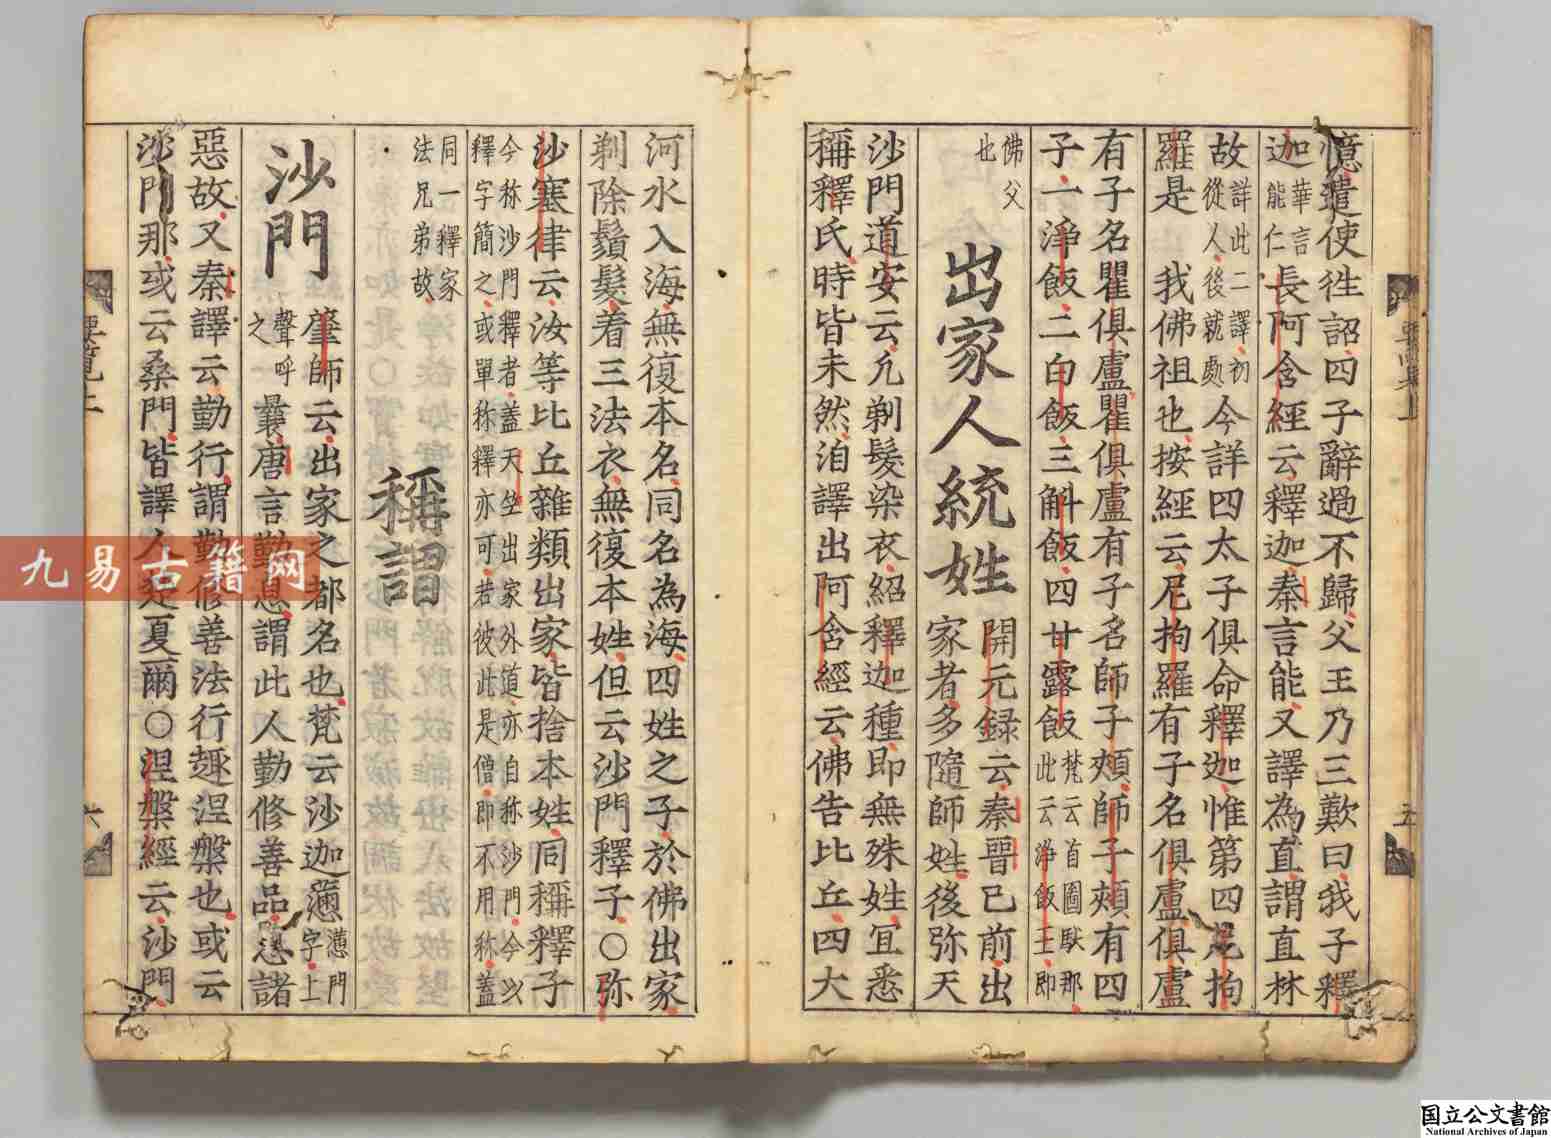 憶遣使徃詔四子辭過不歸父王乃三歎曰我子釋
迦華言能仁長阿含經云釋迦秦言能又譯為直謂直林
故詳此二譯初從人後就處今詳四太子俱命釋迦惟第四尼拘
羅是 我佛祖也按經云尼拘羅有子名俱盧俱盧
有子名瞿俱盧瞿俱盧有子名師子頰師子頰有四
子一淨飯二白飯三斛飯四甘露飯梵云首圖馱那此云淨飯王即
佛父也
出家人統姓 開元録云秦晋已前出家者多隨師姓後弥天
沙門道安云凢剃髮染衣紹釋迦種即無殊姓冝悉
稱釋氏時皆未然洎譯出阿含經云佛告比丘四大
河水入海無復本名同名為海四姓之子於佛出家
剃除鬚髮着三法衣無復本姓但云沙門釋子〇弥
沙塞律云汝等比丘雜類出家皆捨本姓同稱釋子
今称沙門釋者盖天竺出家外道亦自称沙門今以
釋字簡之或單称釋亦可若彼此是僧即不用称盖
同一釋家
法兄弟故
稱謂
沙門 肇師云出家之都名也梵云沙迦懣懣門字上
聲呼之曩唐言勤息謂此人勤修善品息諸
惡故又秦譯云勤行謂勤修善法行趣涅槃也或云
沙門那或云桑門皆譯人楚夏爾〇涅槃經云沙門
要覽上
五
六
九易古籍网
国立公文書館
National Archives of Japan